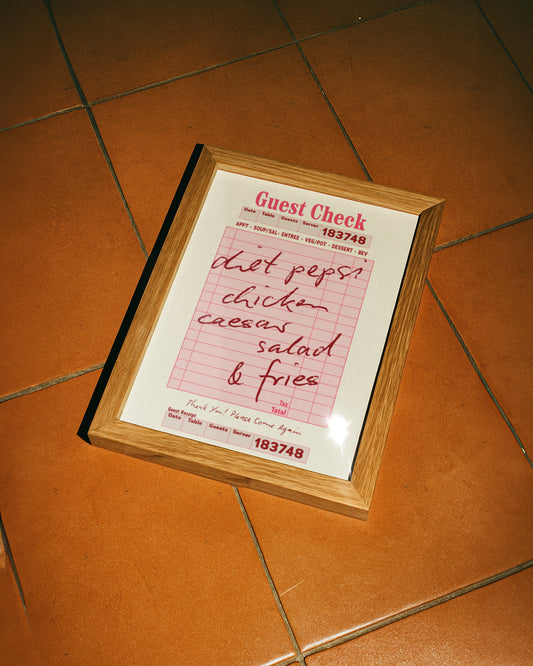 Guest Check
Date Table Guests Server 183748
APPT - SOUP/SAL - ENTREE - VEG/POT - DESSERT - BEV
diet pepsi
chicken
caesar
salad
& fries
Tax
Total
Thank You! Please Come Again
Guest Receipt
Date Table Guests Server 183748